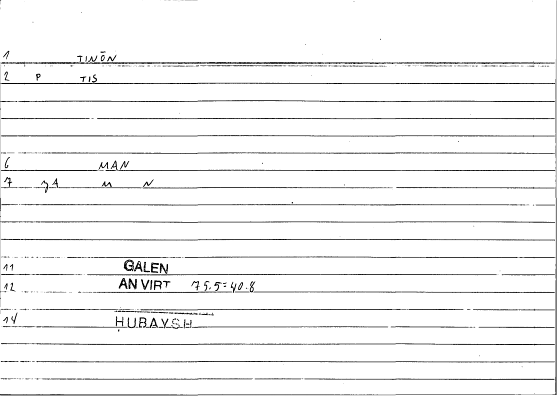 1 TINŌN
2 P TIS
6 MAN
7 M N
11 GALEN
12 AN VIRT 75.5=40.8
14 ḤUBAYSH